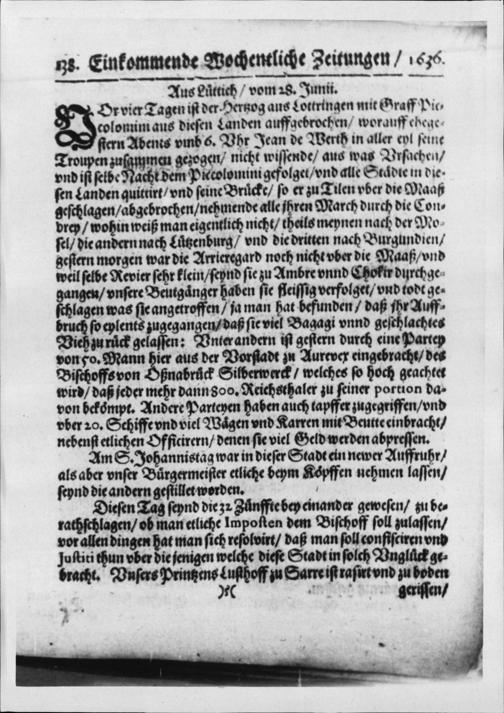 138. Einkommende Wochentliche Zeitungen / 1636.
Aus Lüttich / vom 28. Junii.
VOr vier Tagen ist der Hertzog aus Lottringen mit Graff Pic-
colomini aus diesen Landen auffgebrochen / worauff ehege-
stern Abents vmb 6. Vhr Jean de Werth in aller eyl seine
Troupen zusammen gezogen / nicht wissende / aus was Vrsachen /
vnd ist selbe Nacht dem Piccolomini gefolget / vnd alle Städte in die-
sen Landen quittirt / vnd seine Brücke / so er zu Tilen vber die Maaß
geschlagen / abgebrochen / nehmende alle jhren March durch die Con-
drey / wohin weiß man eigentlich nicht / theils meynen nach der Mo-
sel / die andern nach Lützenburg / vnd die dritten nach Burgundien /
gestern morgen war die Arrieregard noch nicht vber die Maaß / vnd
weil selbe Revier sehr klein / seynd sie zu Ambre vnnd Chokir durchge-
gangen / vnsere Beutgänger haben sie fleissig verfolget / vnd todt ge-
schlagen was sie angetroffen / ja man hat befunden / daß jhr Auff-
bruch so eylents zugegangen / daß sie viel Bagagi vnnd geschlachtes
Vieh zu rück gelassen: Vnter andern ist gestern durch eine Partey
von 50. Mann hier aus der Vorstadt zu Aurevex eingebracht / des
Bischoffs von Oßnabrück Silberwerck / welches so hoch geachtet
wird / daß jeder mehr dann 800. Reichsthaler zu seiner portion da-
von bekömpt. Andere Parteyen haben auch tapffer zugegriffen / vnd
vber 20. Schiffe vnd viel Wägen vnd Karren mit Beute einbracht /
nebenst etlichen Officirern / denen sie viel Geld werden abpressen.
Am S. Johannistag war in dieser Stadt ein newer Auffruhr /
als aber vnser Bürgermeister etliche beym Köpffen nehmen lassen /
seynd die andern gestillet worden.
Diesen Tag seynd die 32 Zünffte bey einander gewesen / zu be-
rathschlagen / ob man etliche Imposten dem Bischoff soll zulassen /
vor allen dingen hat man sich resolvirt / daß man soll confisciren vnd
Justiti thun vber die jenigen welche diese Stadt in solch Vnglück ge-
bracht. Vnsers Printzens Lusthoff zu Sarre ist rasirt vnd zu boden
)( gerissen /